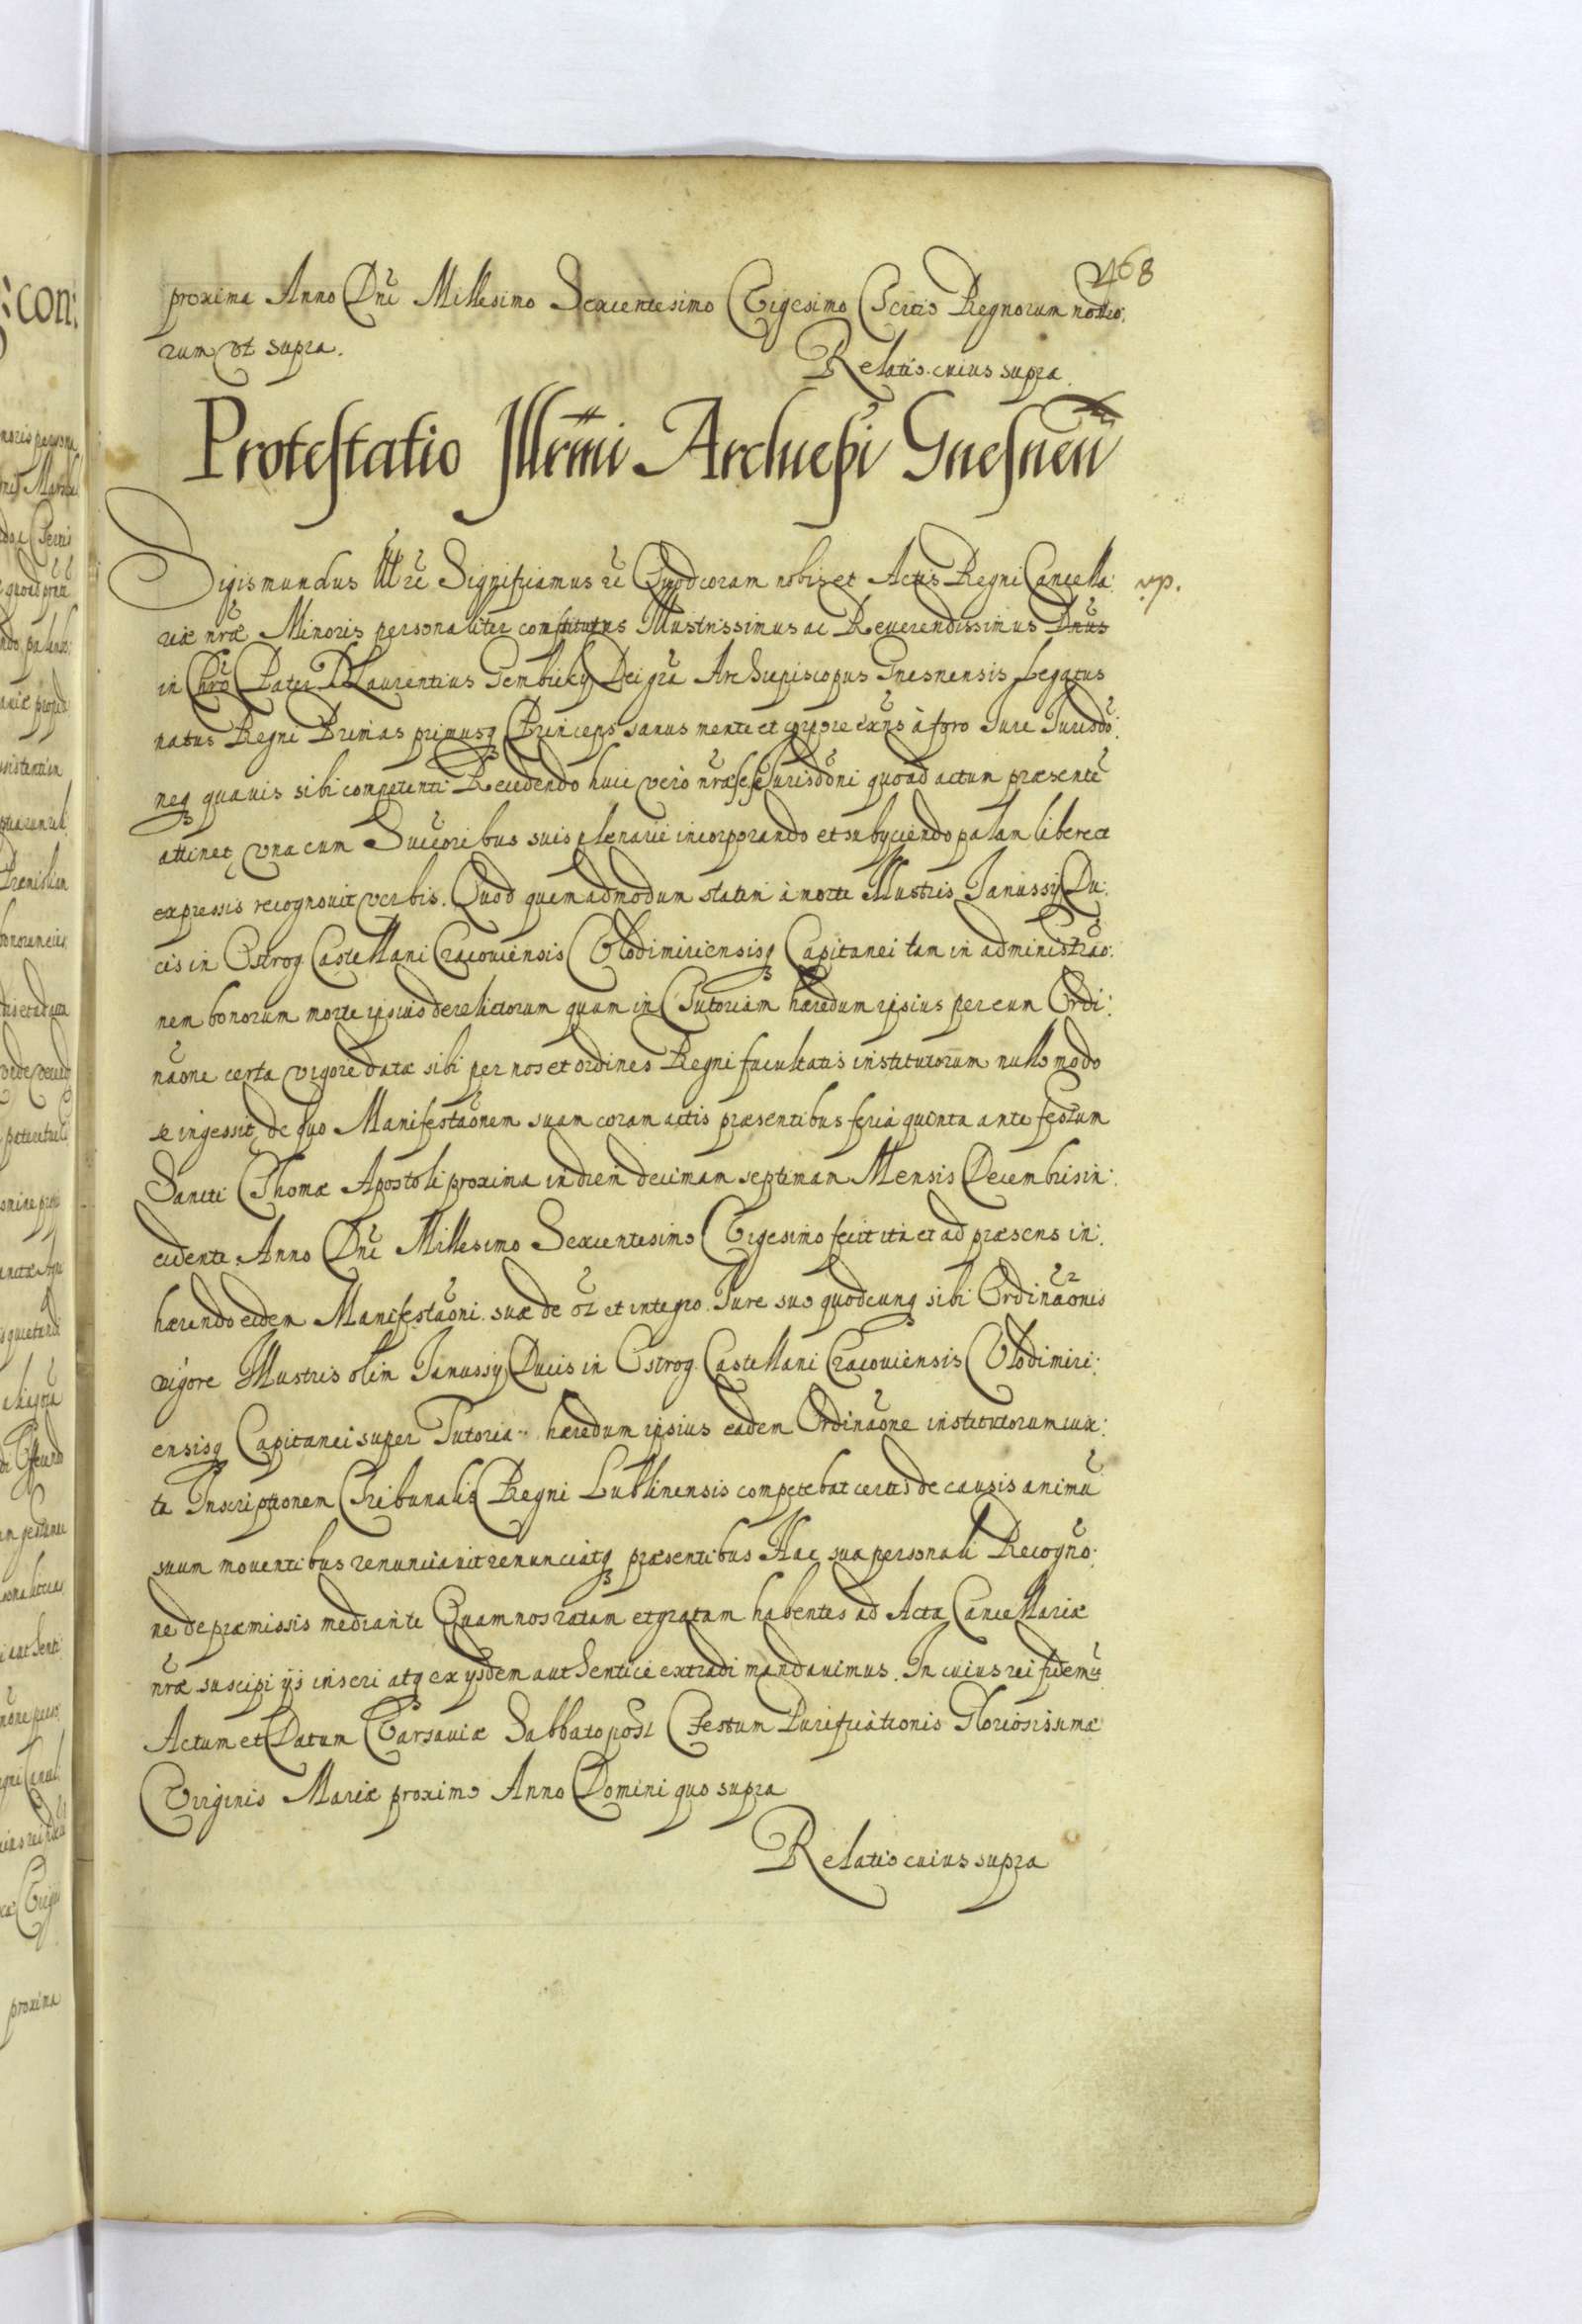 468
proxima Anno Dni Millesimo Sexcentesimo Vigesimo Tertio Regnorum nostro:
rum ut supra.
Relatio cuius supra.
Protestatio Illrmi Archiepi Gnesnen
Sigismundus III re Significamus re Quod coram nobis et Actis Regni Cancella:
vp.
riæ nræ Minoris personaliter constitutus Illustrissimus ac Reuerendissimus Dnus
in Chro Pater D Laurentius Gembicky Dei gra Archiepiscopus Gnesnensis Legatus
natus Regni Primas primusq Princeps sanus mente et corpore exns à foro Iure Iurisdo:
neq quauis sibi competenti Recedendo huic vero nræ sese Iurisdoni quoad actum præsente
attinet, una cum Succoribus suis plenarie incorporando et subyciendo palam libere et
expressis recognouit verbis. Quod quemadmodum statim à morte Illustris Janussij Du:
cis in Ostrog Castellani Cracouiensis Vlodimiriensisq Capitanei tam in administrao:
nem bonorum morte ipsius derelictorum quam in Tutoriam hæredum ipsius per eum Ordi:
naone certa vigore datæ sibi per nos et ordines Regni facultatis institutorum nullo modo
se ingessit, de quo Manifestaonem suam coram actis præsentibus feria quinta ante festum
Sancti Thomæ Apostoli proxima in diem decimam septimam Mensis Decembris in:
cidente Anno Dni Millesimo Sexcentesimo Vigesimo fecit ita et ad præsens in:
hærendo eidem Manifestaoni suæ de oi et integro Iure suo quodcunq sibi Ordinaonis
vigore Illustris olim Janussij Ducis in Ostrog Castellani Cracouiensis Vlodimiri:
ensisq Capitanei super Tutoria hæredum ipsius eadem Ordinaone institutorum iux:
ta Inscriptionem Tribunalis Regni Lublinensis competebat certis de causis animu
suum mouentibus renunciauit renunciatq præsentibus Hac sua personali Recogno:
ne de præmissis mediante Quam nos ratam et gratam habentes ad Acta Cancellariæ
nræ suscipi ijs inseri atq ex ijsdem authentice extradi mandauimus. In cuius rei fidem
Actum et Datum Varsauiæ Sabbato post Festum Purificationis Gloriosissimæ
Virginis Mariæ proximo Anno Domini quo supra
Relatio cuius supra